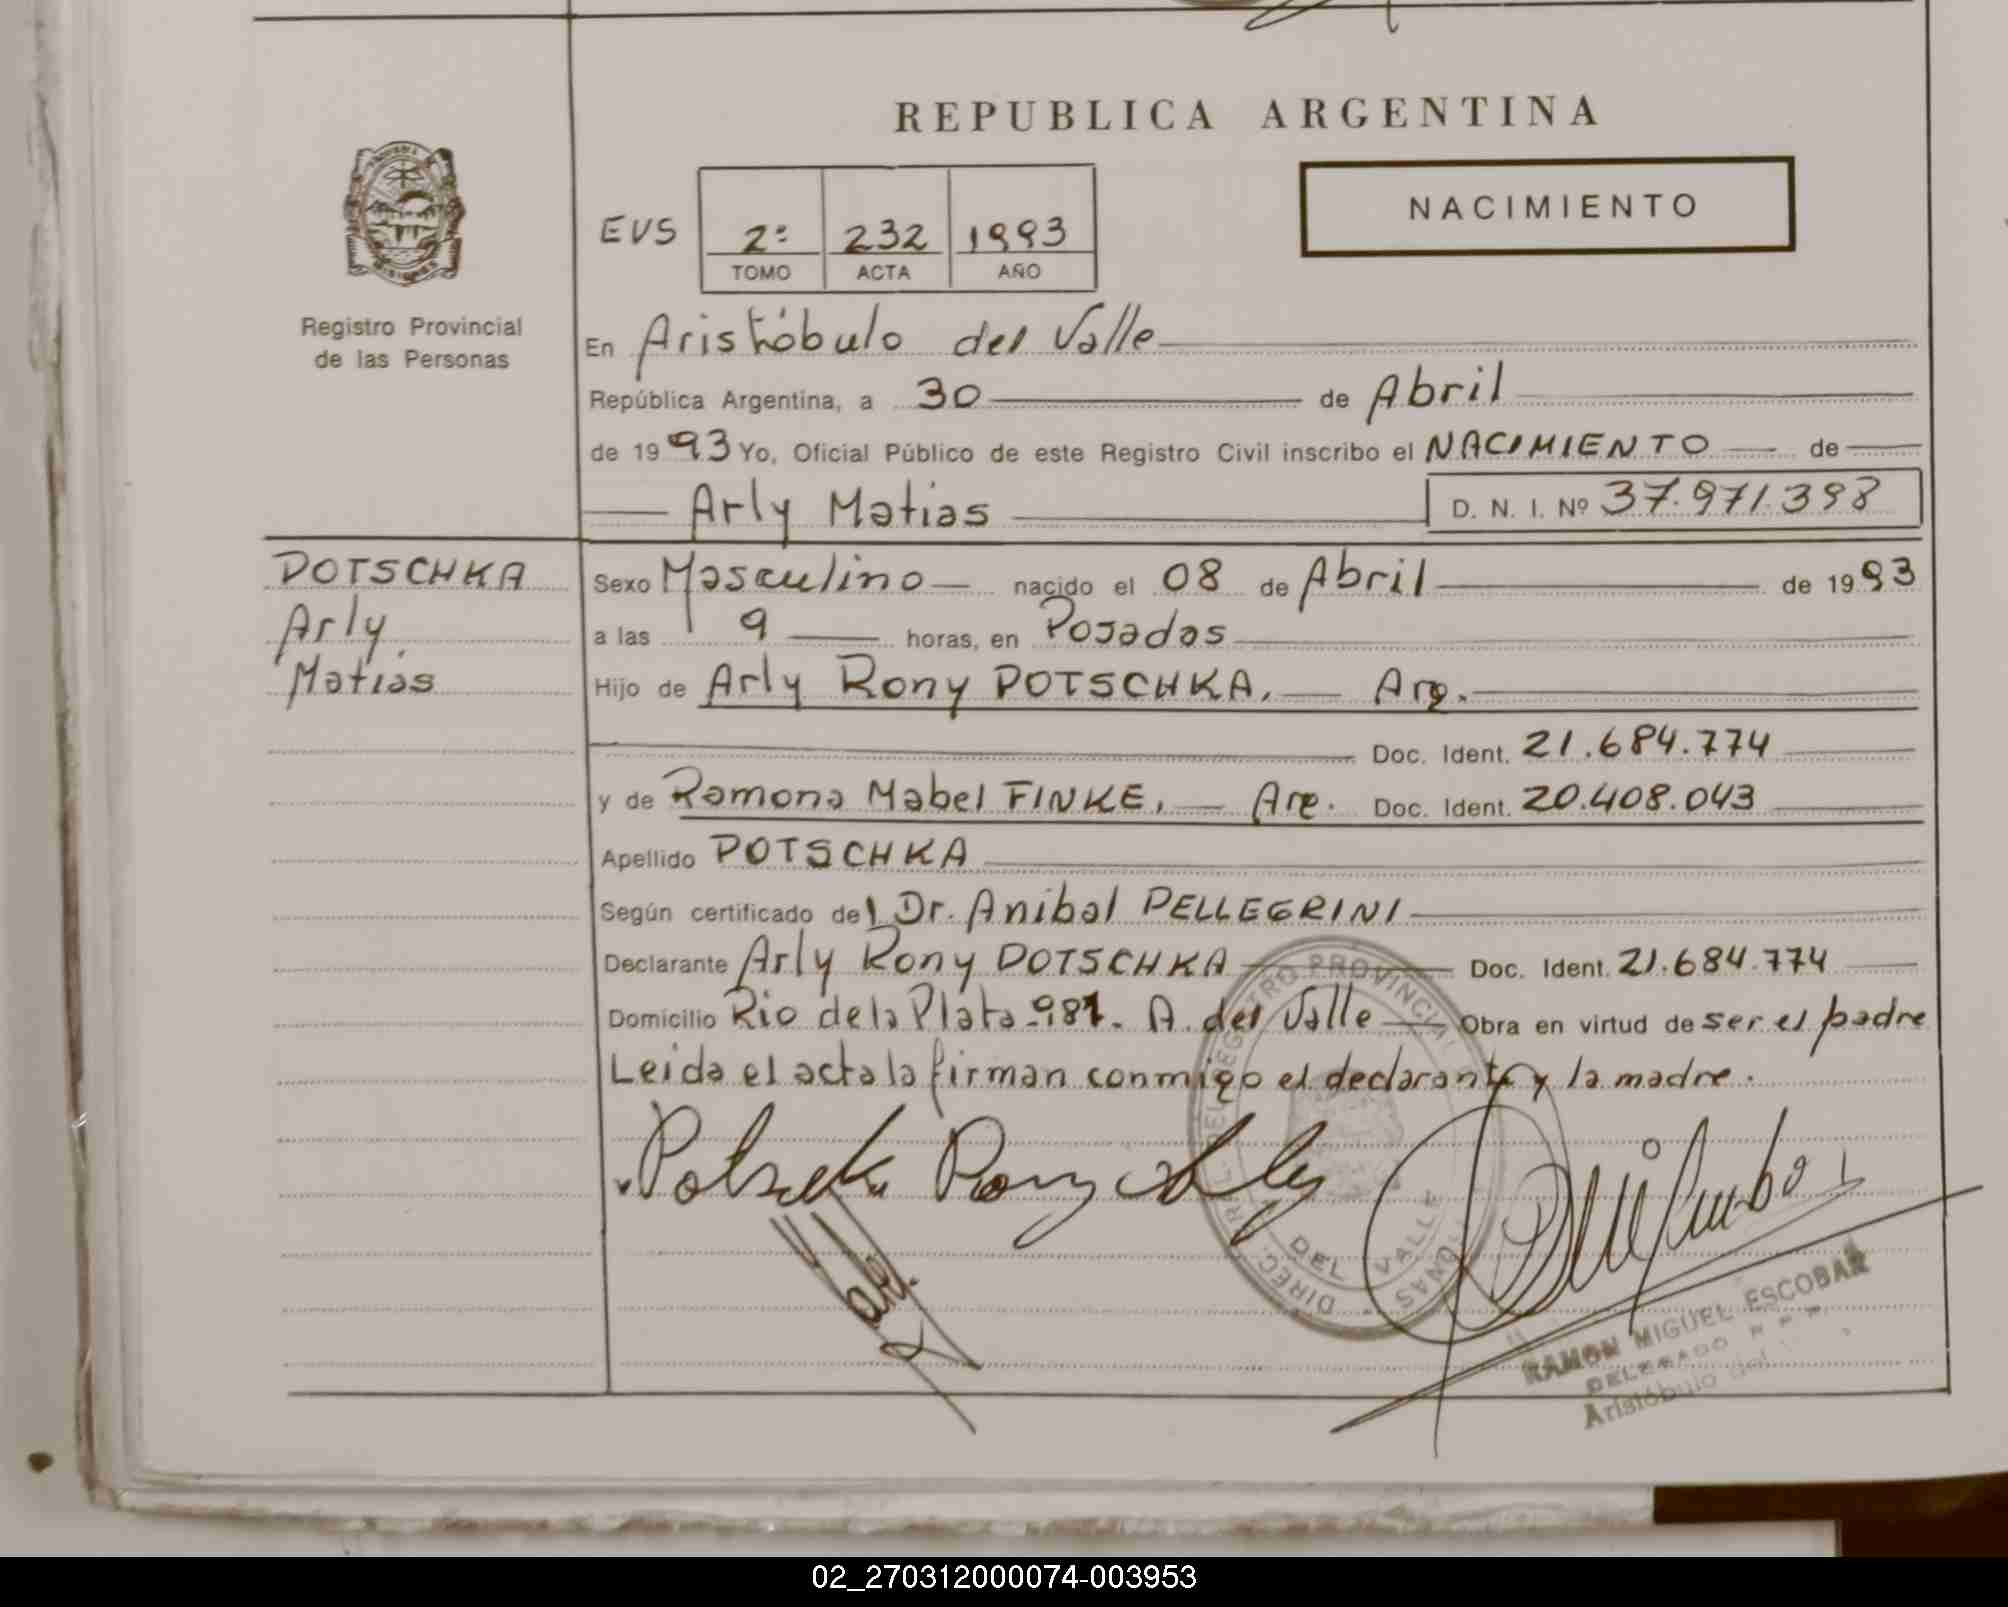 REPUBLICA ARGENTINA
NACIMIENTO
EVS 2º 232 1993
TOMO ACTA AÑO
Registro Provincial
de las Personas
En Aristóbulo del Valle
República Argentina, a 30 de Abril
de 1993 Yo, Oficial Público de este Registro Civil inscribo el NACIMIENTO de
Arly Matias D. N. I. Nº 37.971.398
POTSCHKA
Arly
Matias
Sexo Masculino nacido el 08 de Abril de 1993
a las 9 horas, en Posadas
Hijo de Arly Rony POTSCHKA. Arg.
Doc. Ident. 21.684.774
y de Ramona Mabel FINKE, Arg. Doc. Ident. 20.408.043
Apellido POTSCHKA
Según certificado del Dr. Anibal PELLEGRINI
Declarante Arly Rony POTSCHKA Doc. Ident. 21.684.774
Domicilio Rio de la Plata 981. A. del Valle Obra en virtud de ser el padre
Leida el acta la firman conmigo el declarante y la madre.
Rony Arly
DIREC. GRAL. DEL REGISTRO PROVINCIAL
DEL VALLE
RAMON MIGUEL ESCOBAR
DELEGADO
Aristóbulo del
02_270312000074-003953